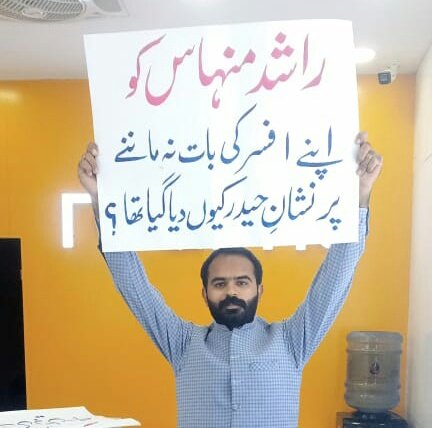 راشد منہاس کو
اپنے افسر کی بات نہ ماننے
پر نشانِ حیدر کیوں دیا گیا تھا؟